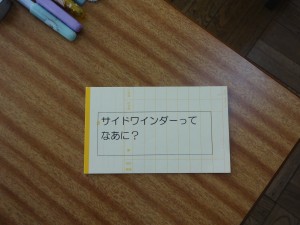 サイドワインダーって
なあに？